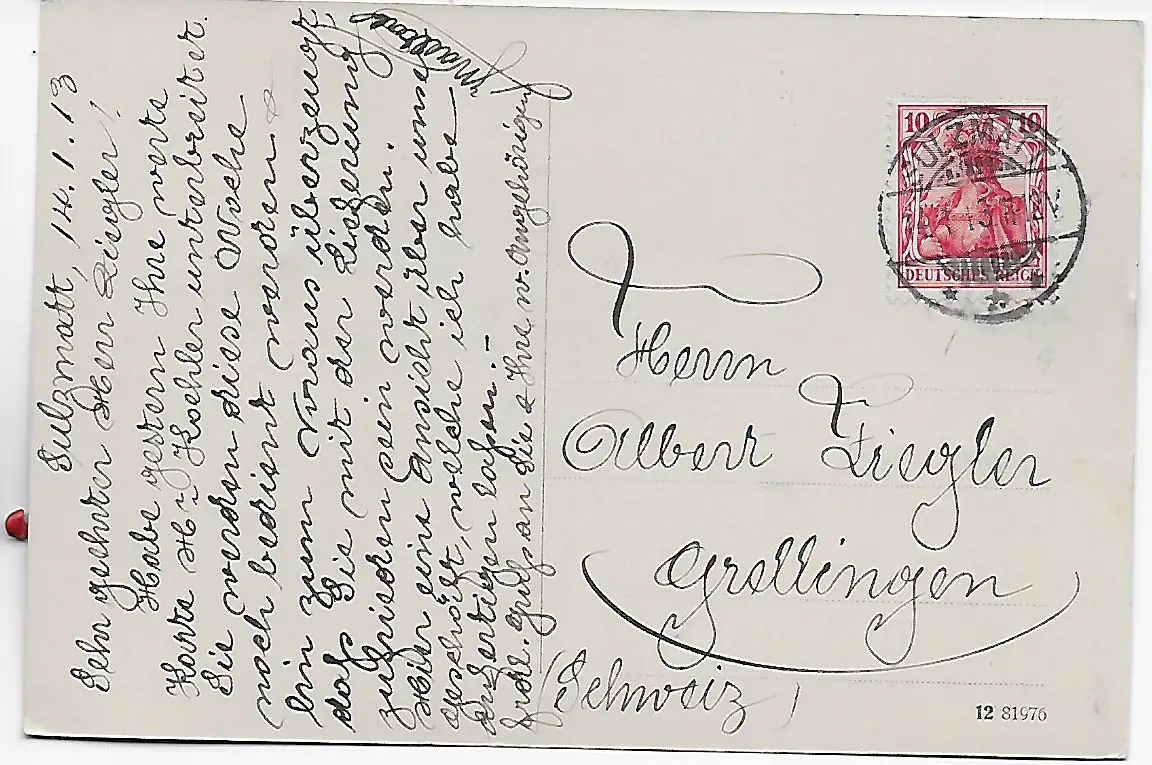 Sulzmatt, 14.1.13
Sehr geehrter Herr Ziegler!
Habe gestern Ihre werte
Karte Hr. Koehler unterbreitet.
Sie werden diese Woche
noch bedient werden.
Bin zum Voraus überzeugt
dass Sie mit der Lieferung
zufrieden sein werden.
Hier eine Ansicht über unser
geschäft, welche ich habe
anfertigen lassen.-
Frdl. Gruss an Sie & Ihre w. Angehörigen
Herrn
Albert Ziegler
Grellingen
(Schweiz)
10 10
DEUTSCHES REICH
SULZMATT
12 81976